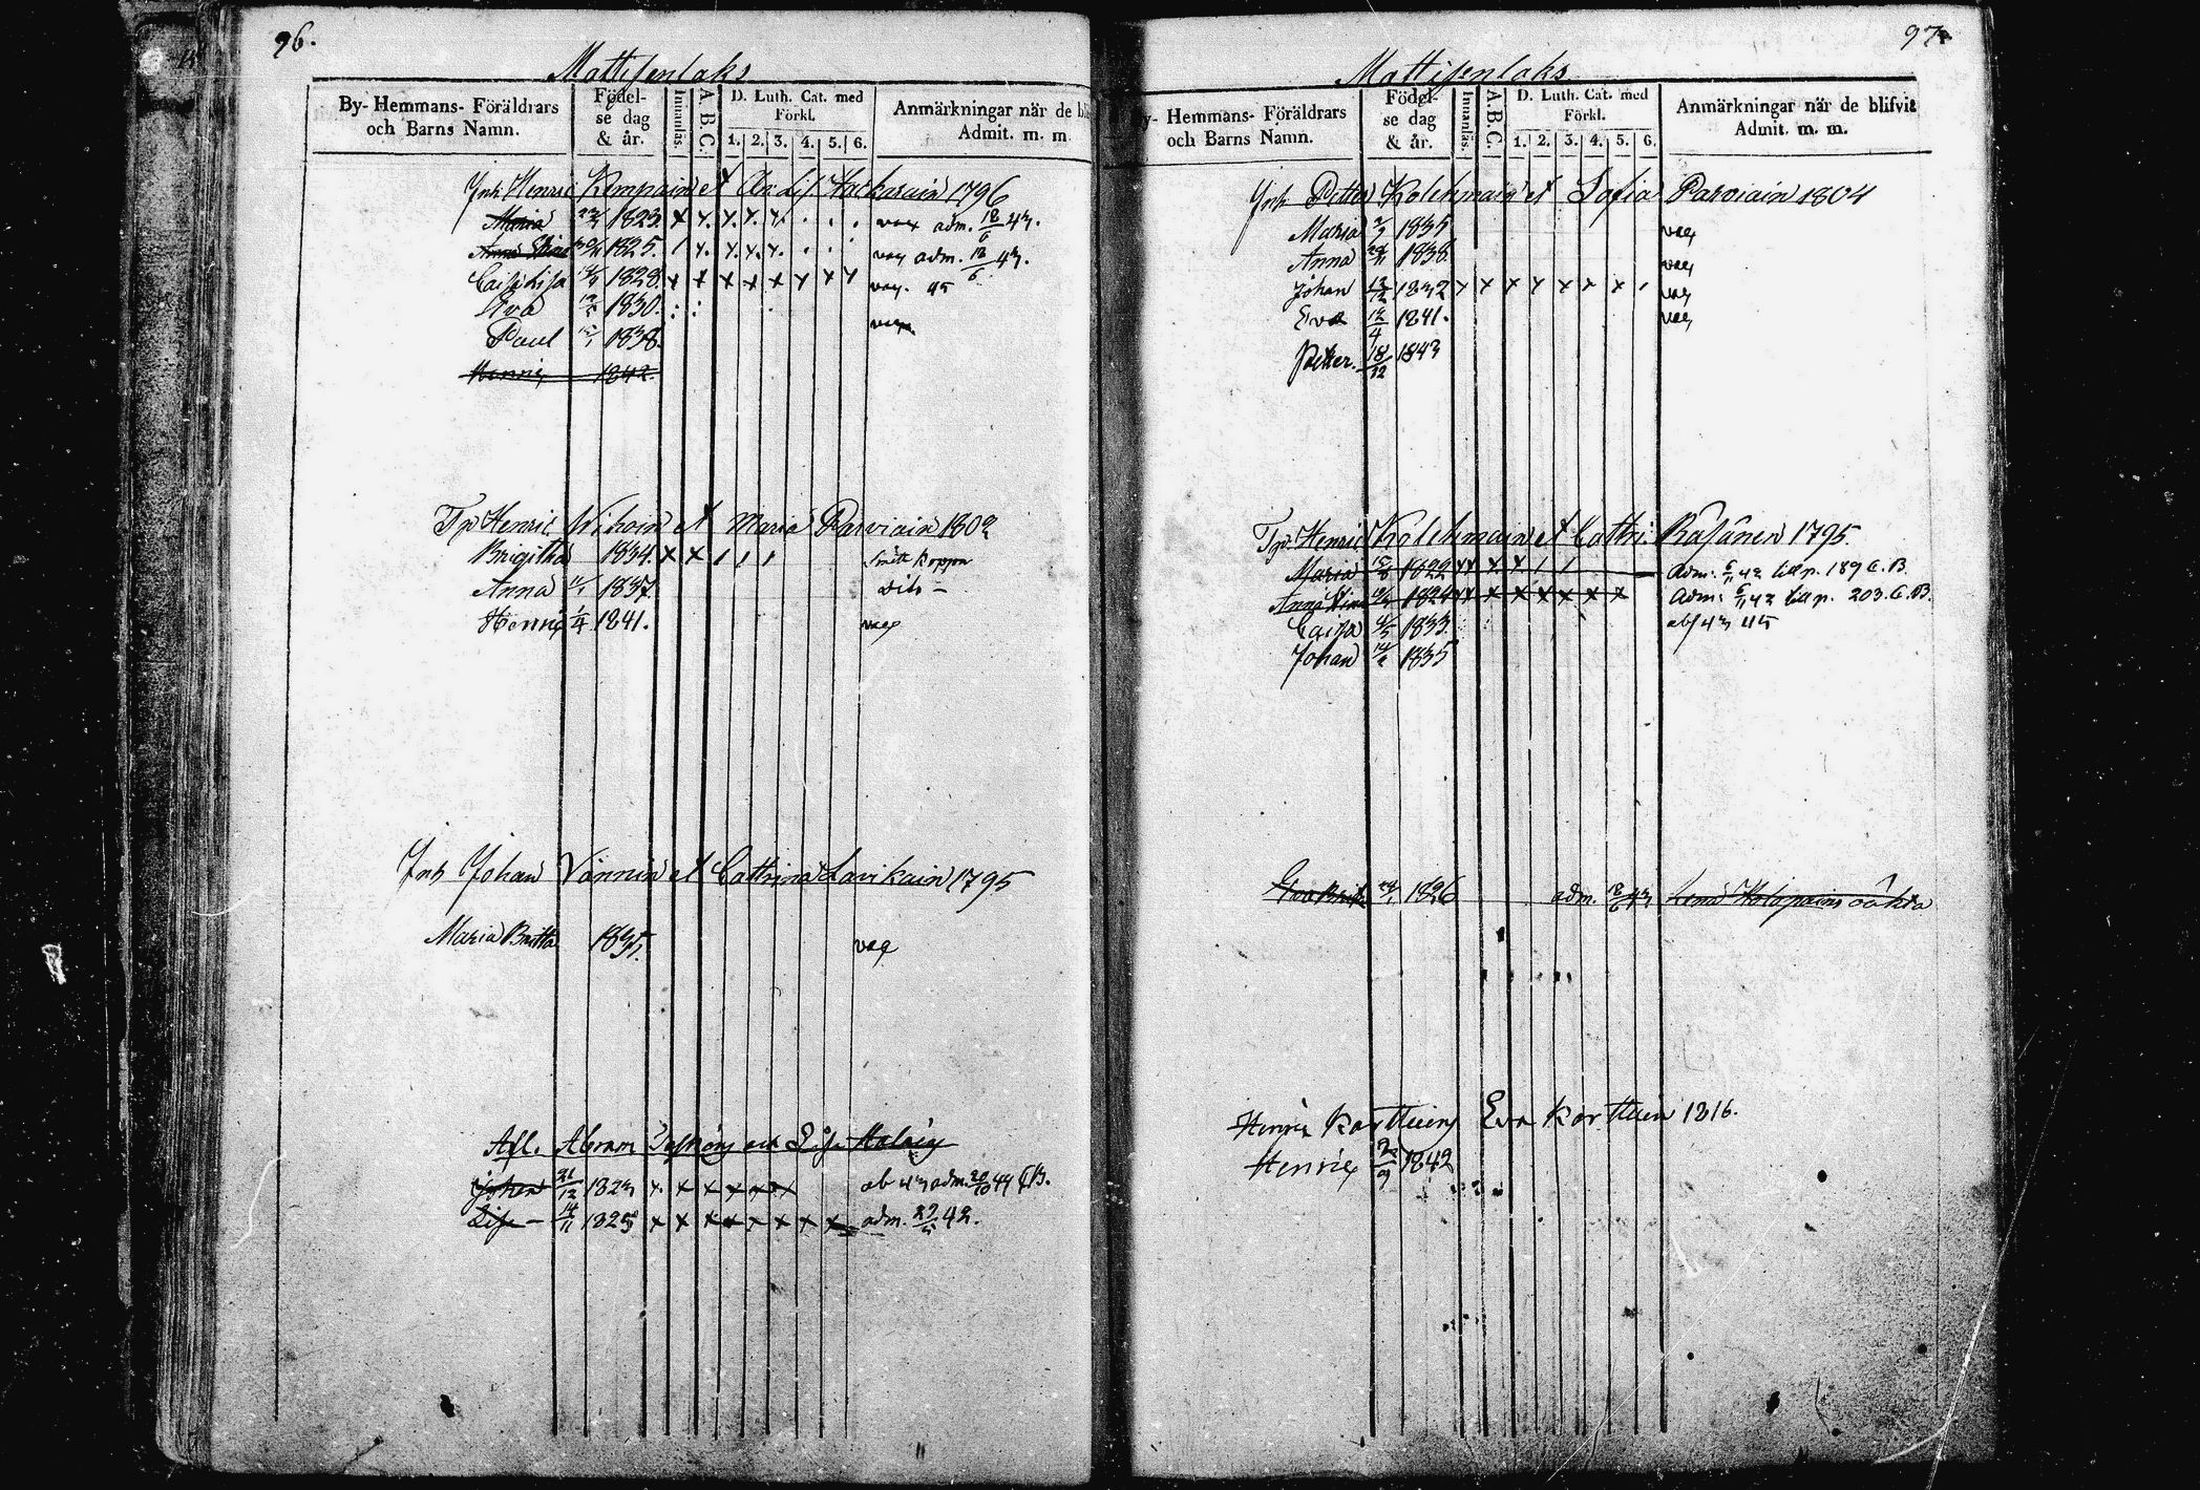 96.
Mattisenlaks
By- Hemmans- Föräldrars och Barns Namn.
Födel- se dag & år.
Innanläs.
A.B.C.
D. Luth. Cat. med Förkl.
1. 2. 3. 4. 5. 6.
Anmärkningar när de bli
Admit. m. m
Inh Henric Kempain et 1796
Maria 1823. x x. x. x. x. . . . vax adm. 18/6 43.
Anna Stina 1825. / x. x. x. x. vax adm. 18/6 43.
Caisa Lisa 1828. x x x x x x x x vax. 45
Eva 1830. : :
Paul 1838.
Henric 1842.
Tp Henric et Maria Parviain 1802
Brigitha 1834. x x / / / koppor
Anna 1837 dito –
Henric 1/4 1841. vax
Inh Johan Vännin et Cathrina Lavikain 1795
Maria Britta 1835. vax
Afl. Abram och Lisa
Johan 21/12 1823 x. x x x x x ab 43 adm. 20/10 44 CB.
Lisa – 14/11 1825 x x x x x x x x adm. 42.
97.
Mattisenlaks
y- Hemmans- Föräldrars och Barns Namn.
Födel- se dag & år.
Innanläs.
A.B.C.
D. Luth. Cat. med Förkl.
1. 2. 3. 4. 5. 6.
Anmärkningar när de blifvit
Admit. m. m.
Inh Petter Kolehmain et Sofia Parviain 1804
Maria 1835 vax
Anna 1838. vax
Johan 1832 x x x x x x x / vax
Eva 12/4 1841. vax
Petter. 18/12 1843
Tp. Henric Kolehmain et Cathri. Räsänen 1795.
Maria 1822 x x x. x. / / Adm. 6/11 42 till p. 189 C.B.
Anna Stina 1824 x x x x x x x Adm: 6/11 42 till p. 203. C.B.
Caisa 1833. abs 43 45
Johan 1835
Eva Brita 1826 adm. 18/6 43 Lena
Henric Karttuin Eva Karttuin 1816.
Henric 2/9 1842